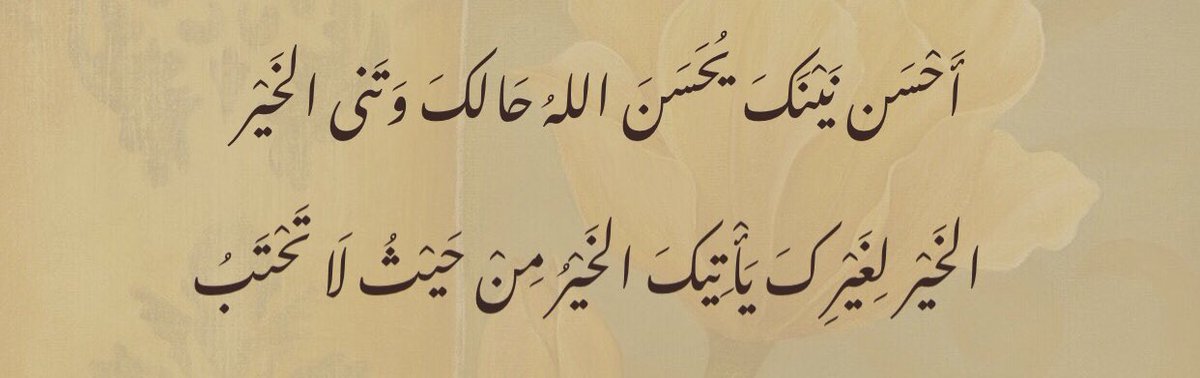 أَحْسَن نَيْنَكَ يُحَسَنَ اللهُ حَالكَ وَتَنى الخَيْر
الخَيْر لِغَيْرِكَ يَأْتِيكَ الخَيْرُ مِنْ حَيْثُ لَا تَحْتَبُ